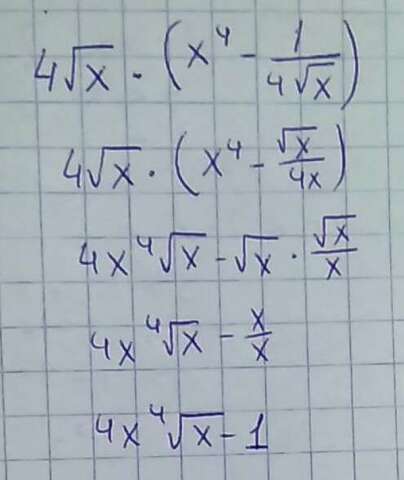 4√x · (x⁴ - 1/(4√x))
4√x · (x⁴ - √x/(4x))
4x⁴√x - √x · √x/x
4x⁴√x - x/x
4x⁴√x - 1